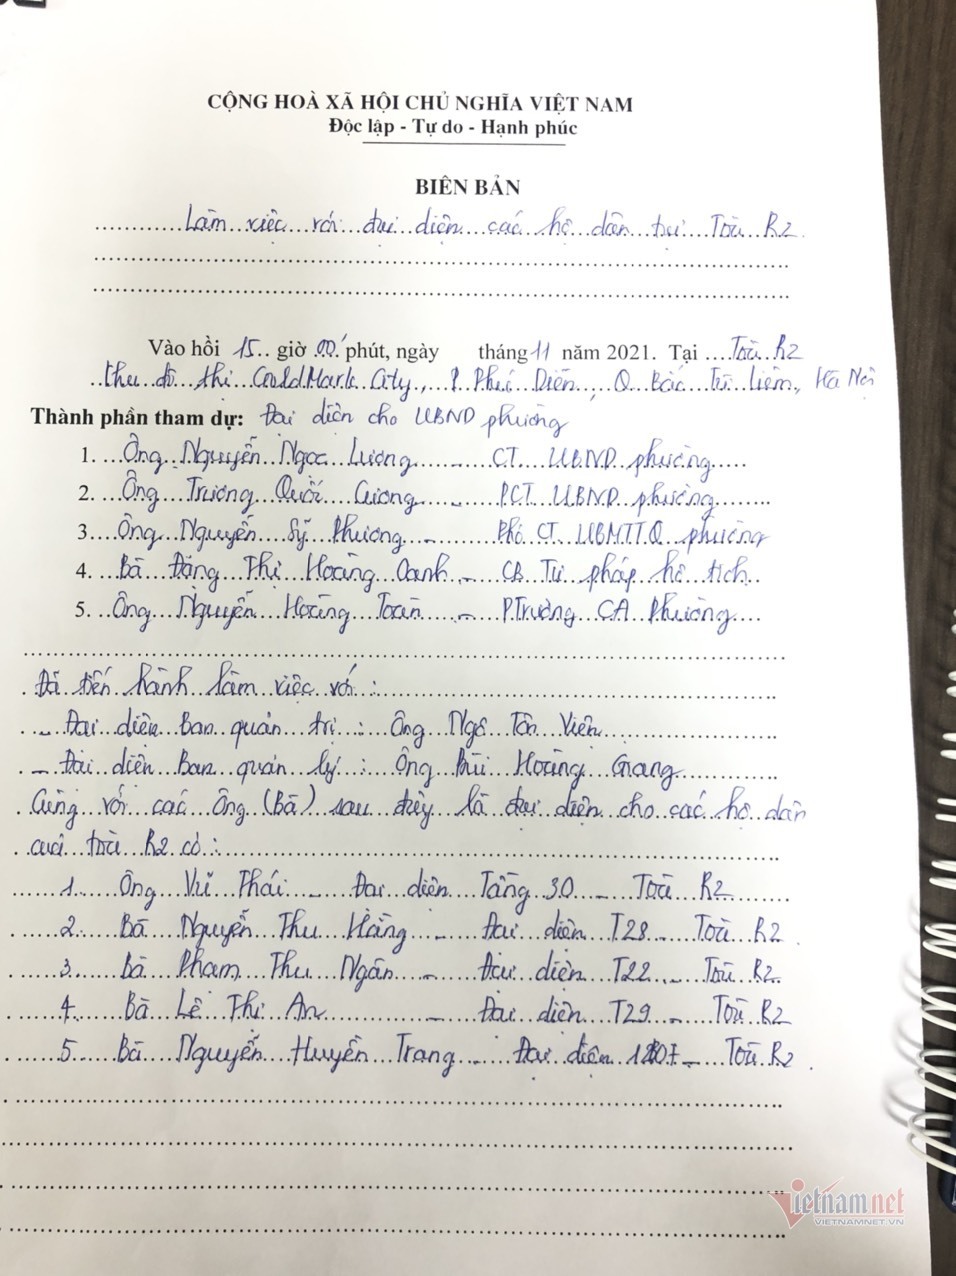 CỘNG HOÀ XÃ HỘI CHỦ NGHĨA VIỆT NAM
Độc lập - Tự do - Hạnh phúc
BIÊN BẢN
Làm việc với đại diện các hộ dân tại Toà R2
Vào hồi 15 giờ 00 phút, ngày tháng 11 năm 2021. Tại Toà R2
khu đô thị GouldMark City, P. Phúc Diễn, Q Bắc Từ Liêm, Hà Nội
Thành phần tham dự: Đại diện cho UBND phường
1. Ông Nguyễn Ngọc Lương - CT UBND phường
2. Ông Trương Quốc Cương - PCT UBND phường
3. Ông Nguyễn Sỹ Phương - Phó CT UBMTTQ phường
4. Bà Đặng Thị Hoàng Oanh - CB Tư pháp hộ tịch
5. Ông Nguyễn Hoàng Toàn - P.Trưởng CA Phường
Đã tiến hành làm việc với:
- Đại diện Ban quản trị: Ông Ngô Tôn Viên
- Đại diện Ban quản lý: Ông Bùi Hoàng Giang
Cùng với các Ông (Bà) sau đây là đại diện cho các hộ dân
của toà R2 có:
1. Ông Vũ Phái - Đại diện Tầng 30 - Toà R2
2. Bà Nguyễn Thu Hằng - Đại diện T28 - Toà R2
3. Bà Phạm Thu Ngân - Đại diện T22 - Toà R2
4. Bà Lê Thị An - Đại diện T29 - Toà R2
5. Bà Nguyễn Huyền Trang - Đại diện - Toà R2
Vietnamnet
VIETNAMNET.VN